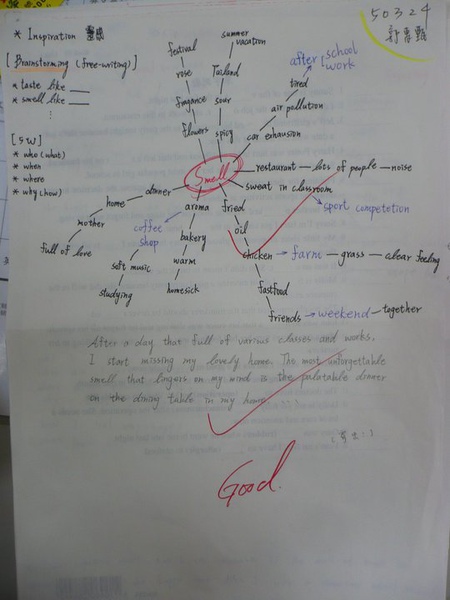 50324
* Inspiration 靈感
[Brainstorming (free-writing)]
* taste like ___
* smell like ___
⋮
[5W]
* who (what)
* when
* where
* why (how)
Smell
flowers
fragance
rose
festival
spicy
sour
Tailand
summer
vacation
car exhausion
air pollution
tired
after school
work
restaurant — lots of people — noise
sweat in classroom
sport competetion
fried
oil
chicken → farm — grass — clear feeling
fastfood
friends → weekend — together
aroma
bakery
warm
homesick
coffee
shop
soft music
studying
dinner
home
mother
full of love
After a day that full of various classes and works,
I start missing my lovely home. The most unforgettable
smell that lingers on my mind is the palatable dinner
on the dining table in my home.
Good.